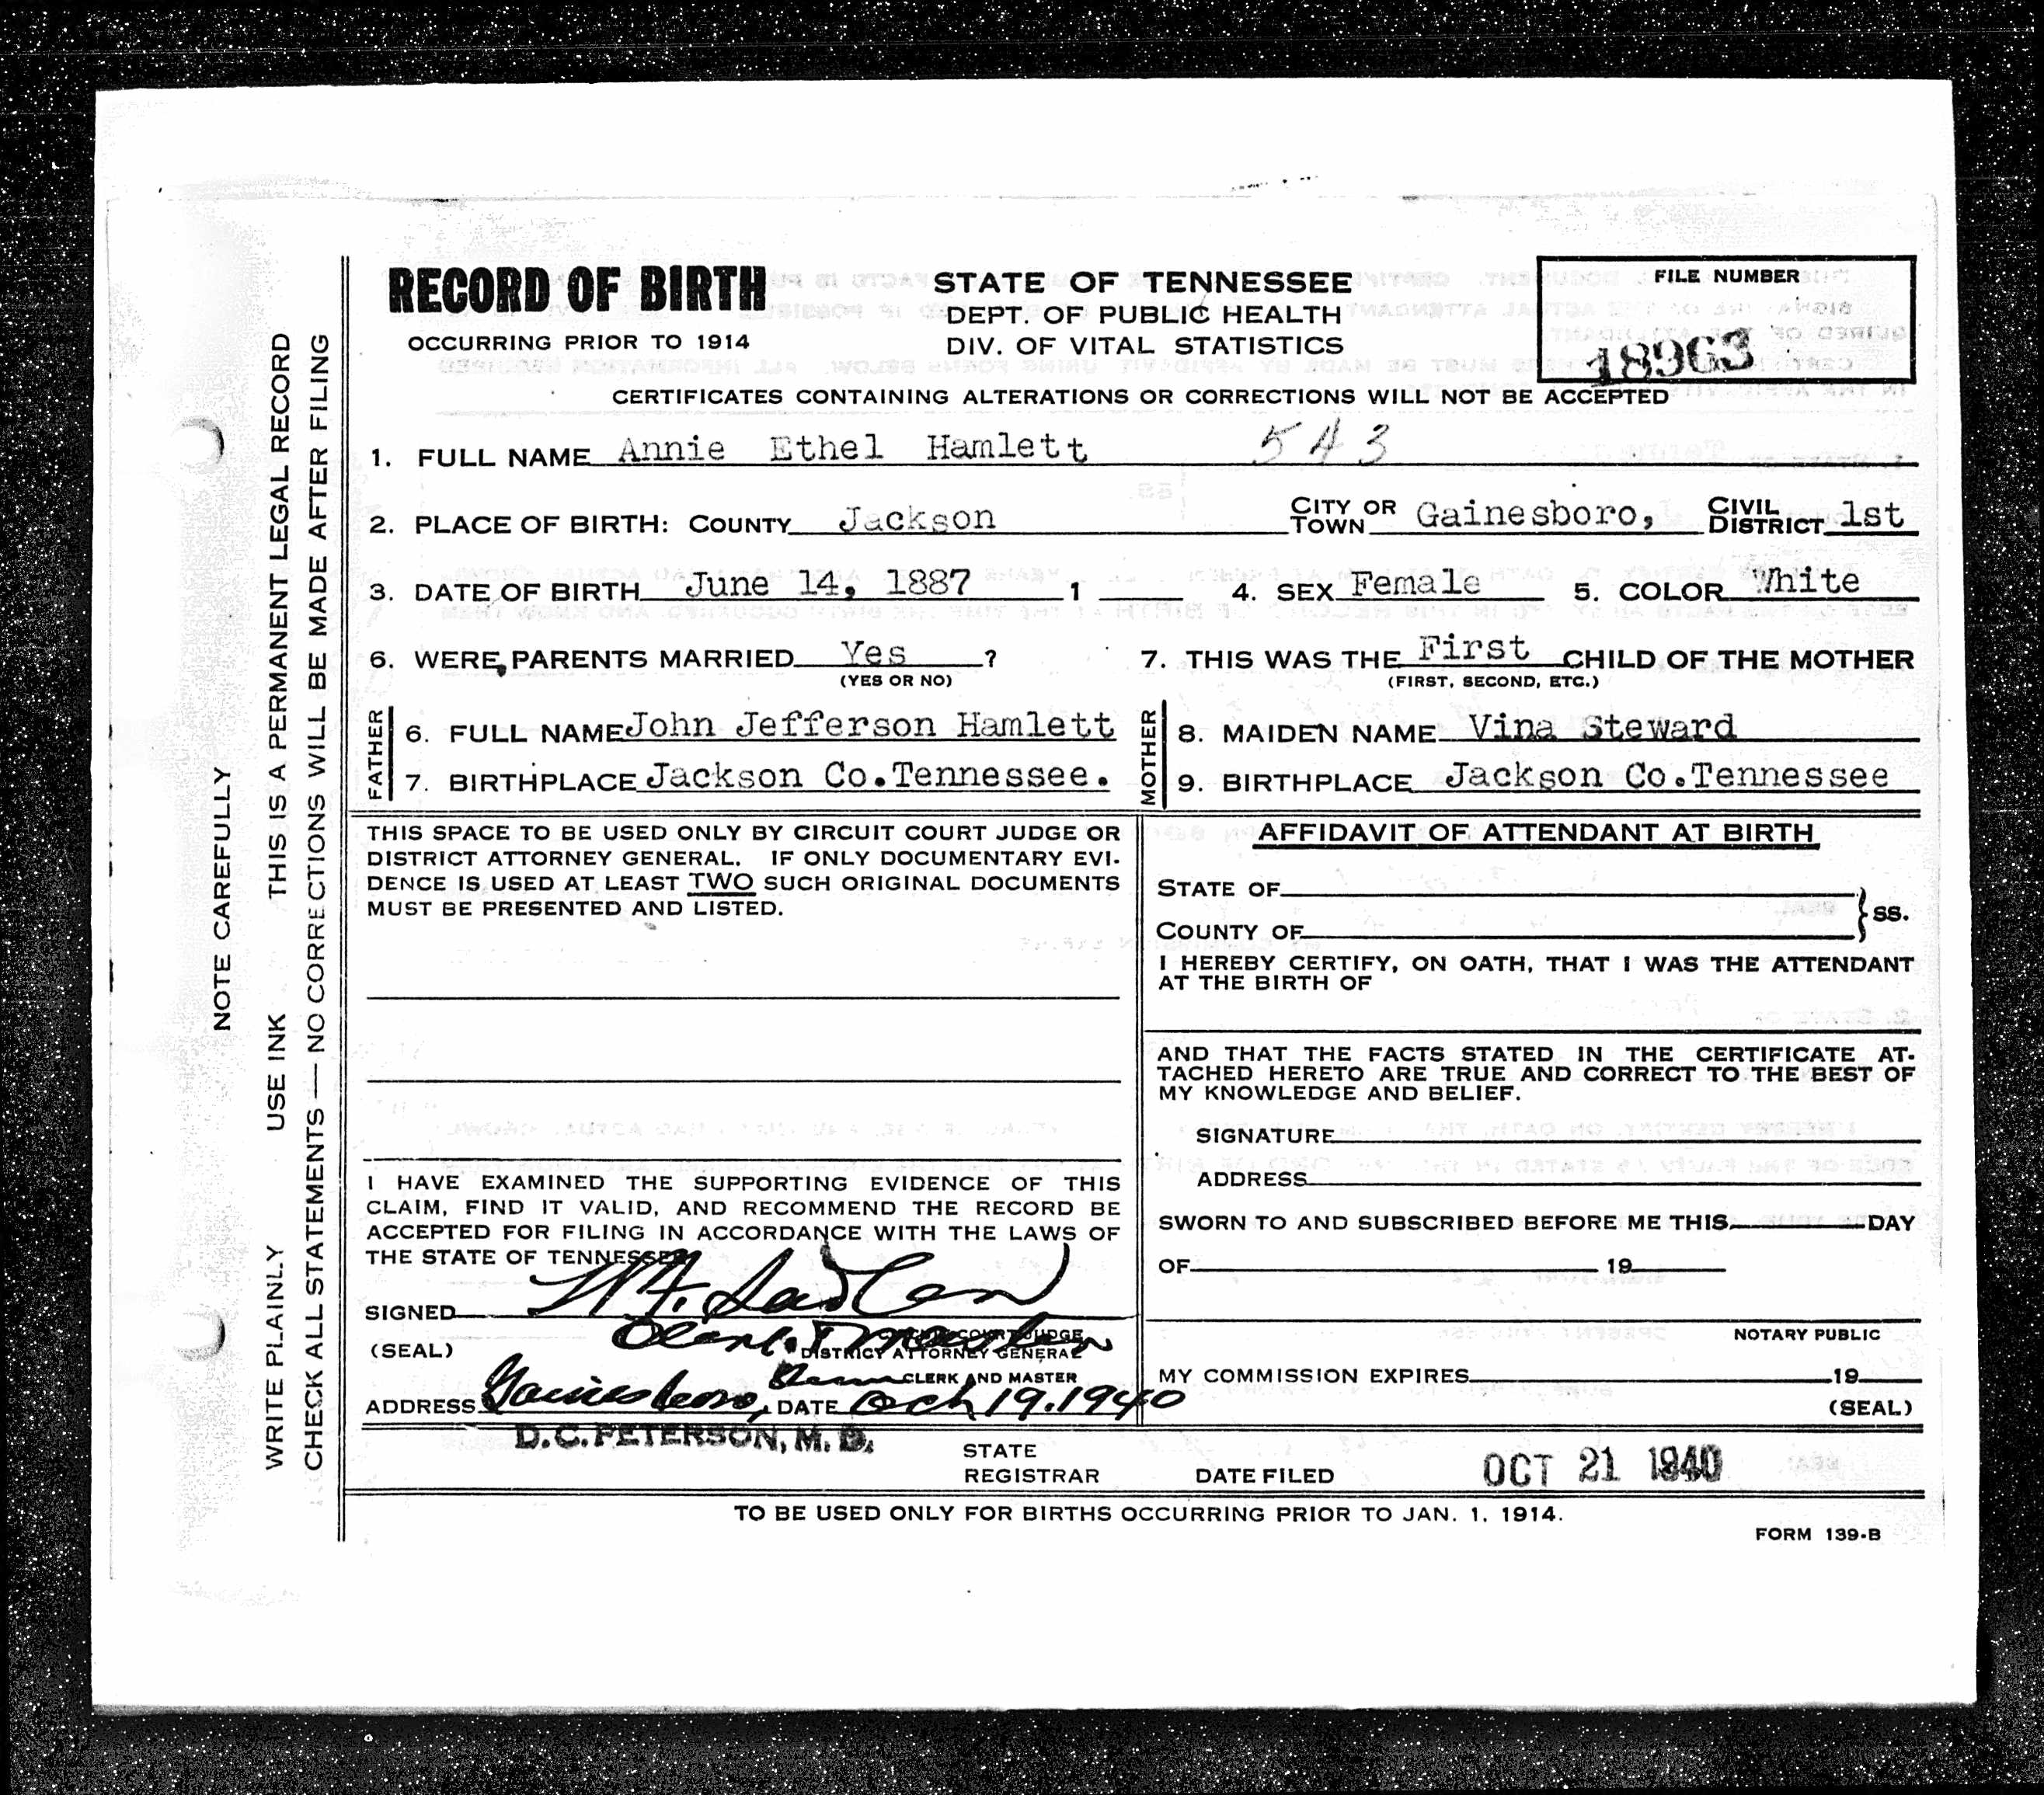 RECORD OF BIRTH
OCCURRING PRIOR TO 1914
STATE OF TENNESSEE
DEPT. OF PUBLIC HEALTH
DIV. OF VITAL STATISTICS
FILE NUMBER
18963
CERTIFICATES CONTAINING ALTERATIONS OR CORRECTIONS WILL NOT BE ACCEPTED
1. FULL NAME Annie Ethel Hamlett 543
2. PLACE OF BIRTH: COUNTY Jackson CITY OR TOWN Gainesboro, CIVIL DISTRICT 1st
3. DATE OF BIRTH June 14, 1887 1 4. SEX Female 5. COLOR White
6. WERE PARENTS MARRIED Yes ? 7. THIS WAS THE First CHILD OF THE MOTHER
(YES OR NO) (FIRST, SECOND, ETC.)
FATHER
6. FULL NAME John Jefferson Hamlett
7. BIRTHPLACE Jackson Co.Tennessee.
MOTHER
8. MAIDEN NAME Vina Steward
9. BIRTHPLACE Jackson Co.Tennessee
THIS SPACE TO BE USED ONLY BY CIRCUIT COURT JUDGE OR
DISTRICT ATTORNEY GENERAL. IF ONLY DOCUMENTARY EVI-
DENCE IS USED AT LEAST TWO SUCH ORIGINAL DOCUMENTS
MUST BE PRESENTED AND LISTED.
I HAVE EXAMINED THE SUPPORTING EVIDENCE OF THIS
CLAIM, FIND IT VALID, AND RECOMMEND THE RECORD BE
ACCEPTED FOR FILING IN ACCORDANCE WITH THE LAWS OF
THE STATE OF TENNESSEE
SIGNED
(SEAL) COURT JUDGE
DISTRICT ATTORNEY GENERAL
CLERK AND MASTER
ADDRESS Gainesboro, DATE Oct 19, 1940
AFFIDAVIT OF ATTENDANT AT BIRTH
STATE OF
COUNTY OF
} SS.
I HEREBY CERTIFY, ON OATH, THAT I WAS THE ATTENDANT
AT THE BIRTH OF
AND THAT THE FACTS STATED IN THE CERTIFICATE AT-
TACHED HERETO ARE TRUE AND CORRECT TO THE BEST OF
MY KNOWLEDGE AND BELIEF.
SIGNATURE
ADDRESS
SWORN TO AND SUBSCRIBED BEFORE ME THIS DAY
OF 19
NOTARY PUBLIC
MY COMMISSION EXPIRES 19
(SEAL)
D. C. PETERSON, M. D. STATE REGISTRAR DATE FILED OCT 21 1940
TO BE USED ONLY FOR BIRTHS OCCURRING PRIOR TO JAN. 1, 1914.
FORM 139-B
NOTE CAREFULLY
WRITE PLAINLY USE INK THIS IS A PERMANENT LEGAL RECORD
CHECK ALL STATEMENTS — NO CORRECTIONS WILL BE MADE AFTER FILING